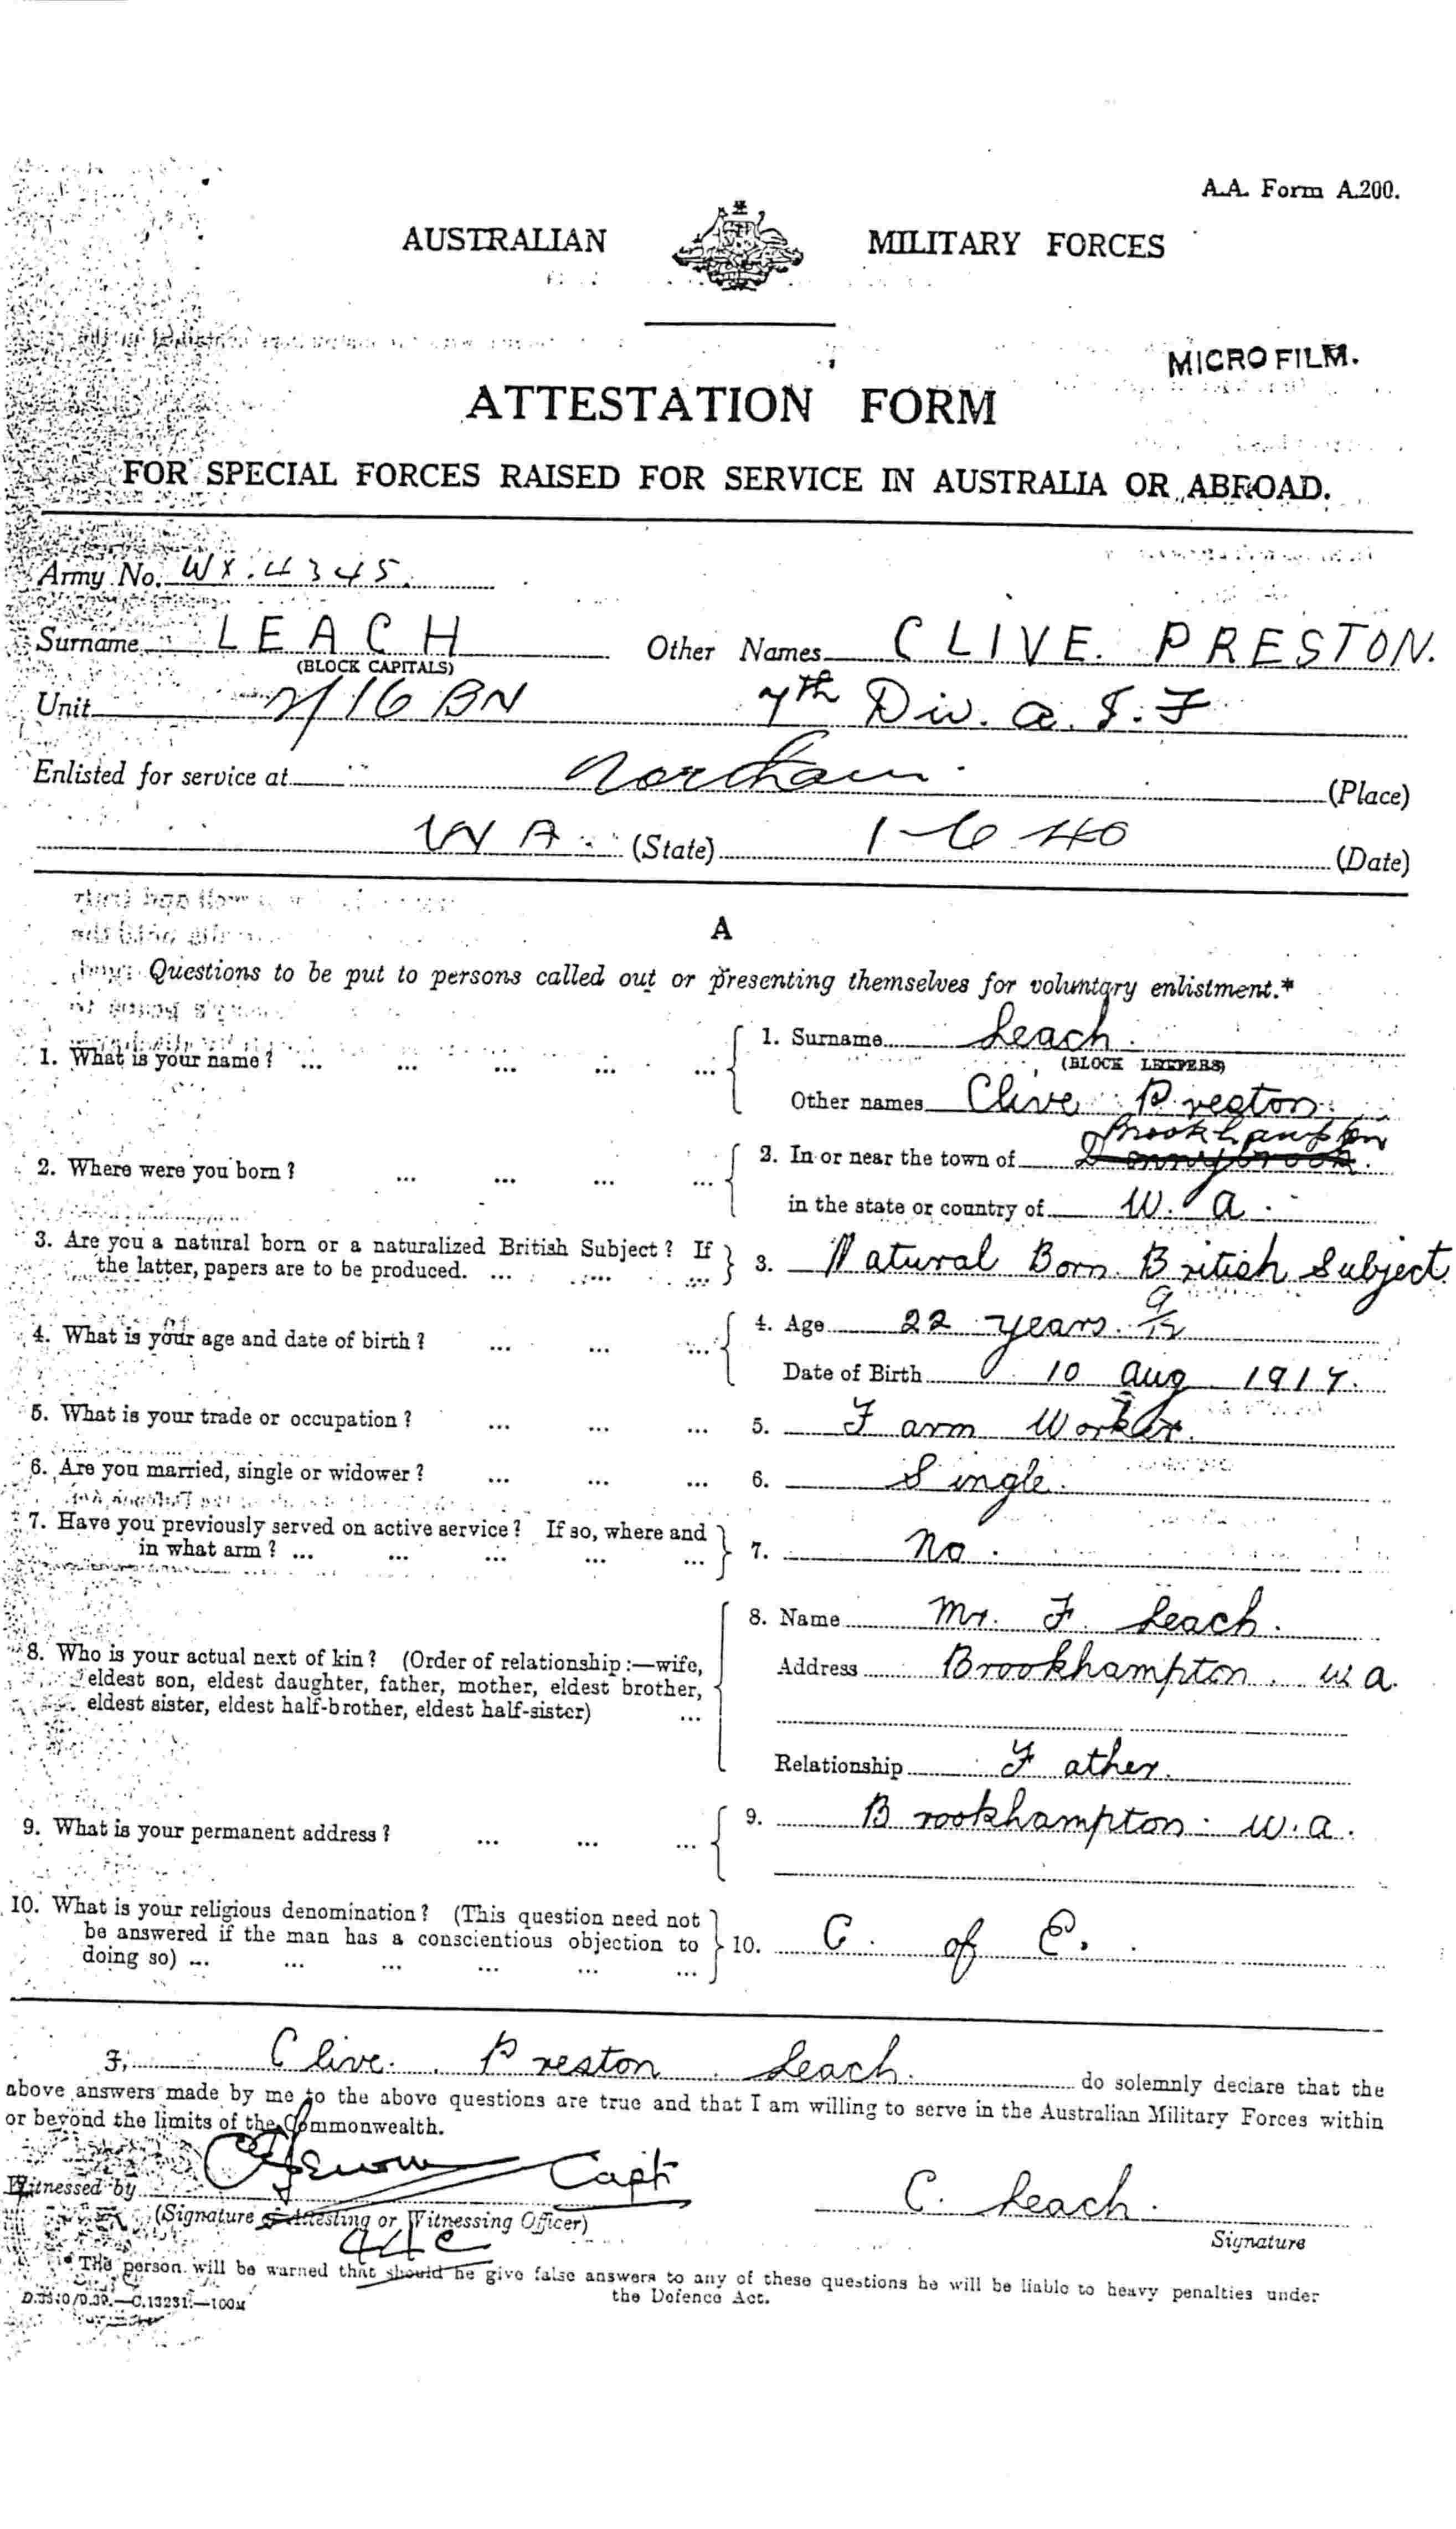 A.A. Form A.200.
AUSTRALIAN MILITARY FORCES
MICROFILM.
ATTESTATION FORM
FOR SPECIAL FORCES RAISED FOR SERVICE IN AUSTRALIA OR ABROAD.
Army No. WX.4345.
Surname LEACH Other Names CLIVE. PRESTON.
(BLOCK CAPITALS)
Unit 2/16 BN 7th Div. A.I.F
Enlisted for service at Northam. (Place)
WA. (State) 1-6-40 (Date)
A
Questions to be put to persons called out or presenting themselves for voluntary enlistment.*
1. What is your name? ... ... ... ... ... 1. Surname Leach.
(BLOCK LETTERS)
Other names Clive Preston.
Brookhampton
2. Where were you born? ... ... ... ... 2. In or near the town of Donnybrook.
in the state or country of W.A.
3. Are you a natural born or a naturalized British Subject? If
the latter, papers are to be produced. ... ... ... 3. Natural Born British Subject
4. What is your age and date of birth? ... ... ... 4. Age 22 years. 9/12
Date of Birth 10 Aug 1917.
5. What is your trade or occupation? ... ... ... 5. Farm Worker.
6. Are you married, single or widower? ... ... ... 6. Single.
7. Have you previously served on active service? If so, where and
in what arm? ... ... ... ... ... 7. No.
8. Name Mr. F. Leach.
8. Who is your actual next of kin? (Order of relationship:—wife,
eldest son, eldest daughter, father, mother, eldest brother,
eldest sister, eldest half-brother, eldest half-sister) ...
Address Brookhampton. W.A.
Relationship Father.
9. What is your permanent address? ... ... ... 9. Brookhampton. W.A.
10. What is your religious denomination? (This question need not
be answered if the man has a conscientious objection to
doing so) ... ... ... ... ... ... 10. C. of E.
I, Clive. Preston Leach. do solemnly declare that the
above answers made by me to the above questions are true and that I am willing to serve in the Australian Military Forces within
or beyond the limits of the Commonwealth.
Witnessed by Capt
C. Leach.
(Signature of Attesting or Witnessing Officer)
Signature
* The person will be warned that should he give false answers to any of these questions he will be liable to heavy penalties under
the Defence Act.